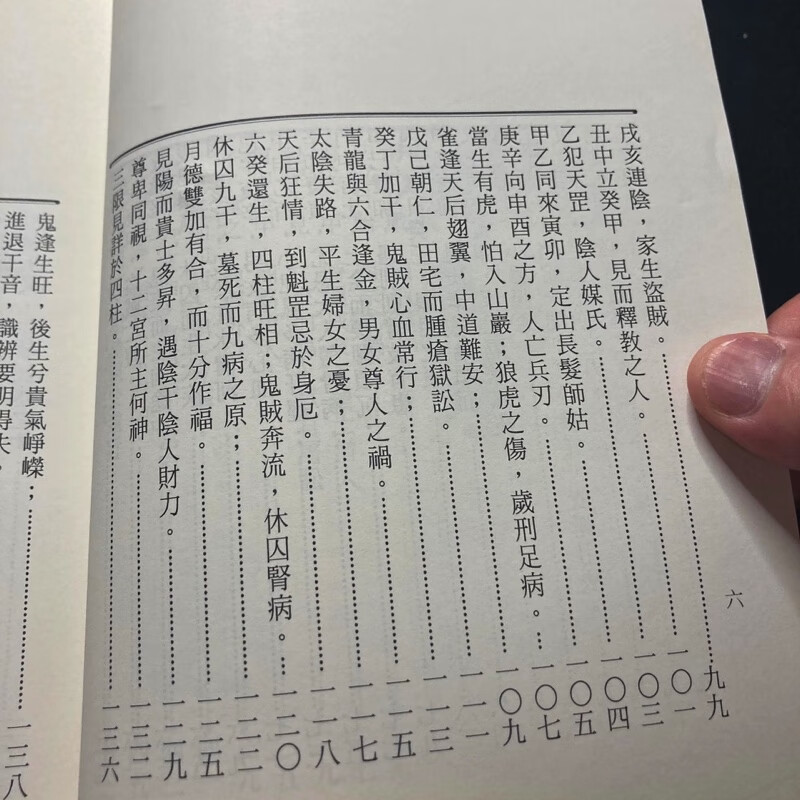 六
戌亥連陰，家生盜賊。……九九
丑中立癸甲，見而釋教之人。……一〇一
乙犯天罡，陰人媒氏。……一〇三
甲乙同來寅卯，定出長髮師姑。……一〇四
庚辛向申酉之方，人亡兵刃。……一〇五
當生有虎，怕入山巖；狼虎之傷，歲刑足病。……一〇七
雀逢天后翅翼，中道難安；……一〇九
戊己朝仁，田宅而腫瘡獄訟。……一一一
癸丁加干，鬼賊心血常行；……一一三
青龍與六合逢金，男女尊人之禍。……一一五
太陰失路，平生婦女之憂；……一一七
天后狂情，到魁罡忌於身厄。……一一八
六癸還生，四柱旺相；鬼賊奔流，休囚腎病。……一二〇
休囚九干，墓死而九病之原；……一二二
月德雙加有合，而十分作福。……一二五
見陽而貴士多昇，遇陰干陰人財力。……一二九
尊卑同視，十二宮所主何神。……一三二
三限見詳於四柱。……一三六
鬼逢生旺，後生兮貴氣崢嶸；……
進退干音，識辨要明得失。……一三八